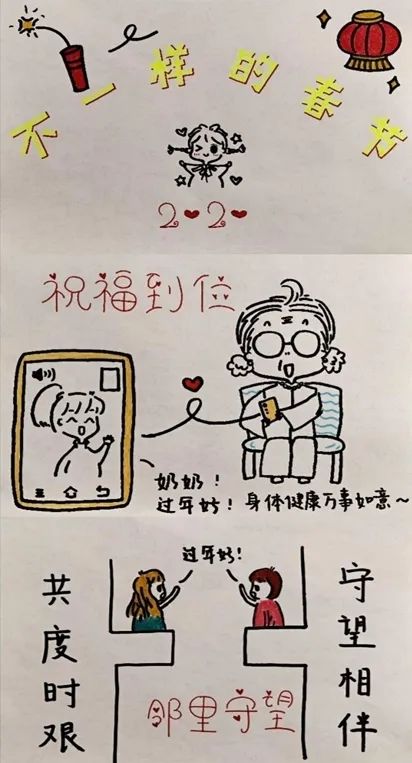 不一样的春节
2020
祝福到位
奶奶！
过年好！身体健康万事如意～
过年好！
共度时艰
守望相伴
邻里守望